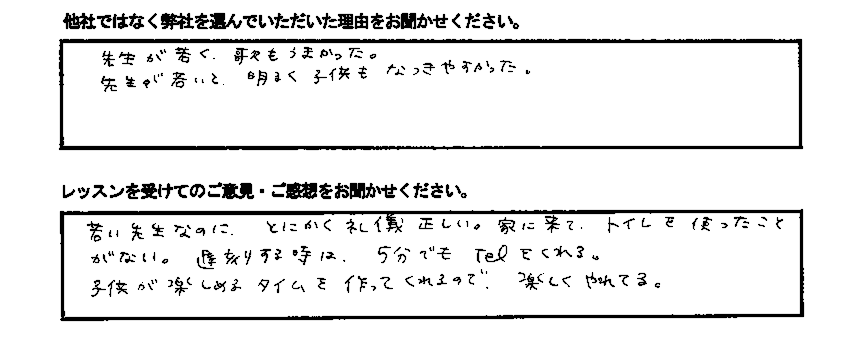 他社ではなく弊社を選んでいただいた理由をお聞かせください。
先生が若く、歌もうまかった。
先生が若いと、明るく子供もなつきやすかった。
レッスンを受けてのご意見・ご感想をお聞かせください。
若い先生なのに、とにかく礼儀正しい。家に来て、トイレを使ったこと
がない。遅刻りする時は、5分でもTelをくれる。
子供が楽しめるタイムを作ってくれるので、楽しくやれてる。